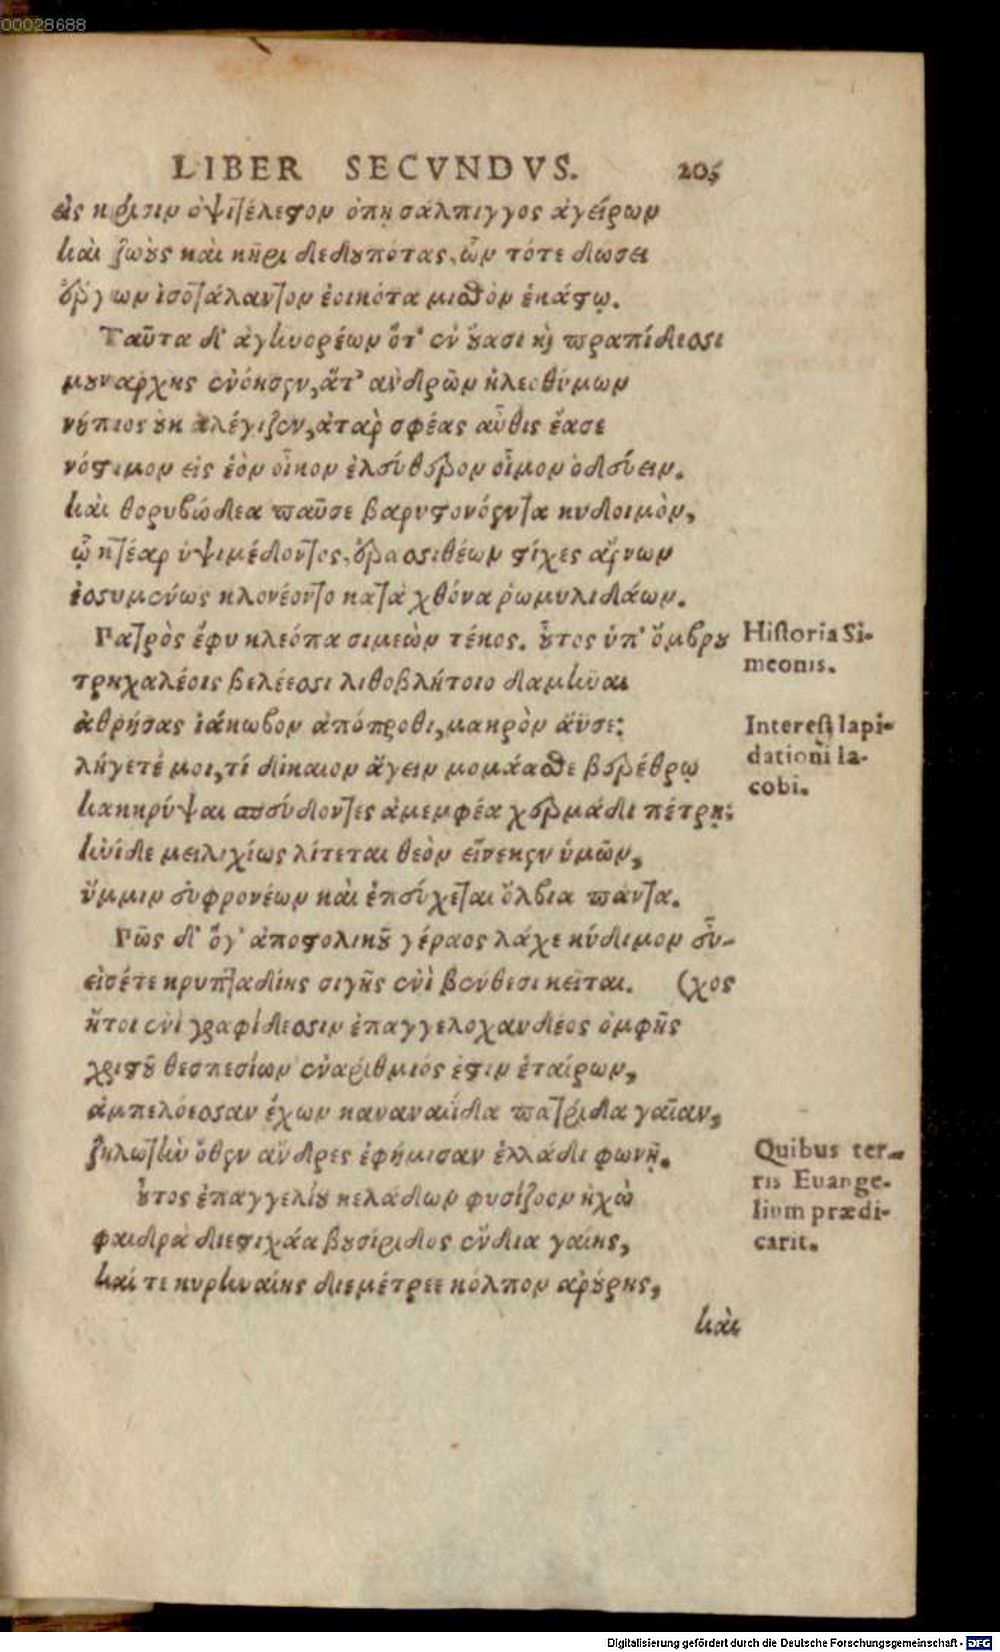 00028688
LIBER SECVNDVS. 205
εἰς κρίσιν ὀψιτέλεστον ὀπῃ σάλπιγγος ἀγείρων
καὶ ζωοὺς καὶ κῆρι δεδουπότας, ὧν τότε δώσει
ἔργων ἰσοτάλαντον ἐοικότα μισθὸν ἑκάστῳ.
Ταῦτα δ' ἀγηνορέων ὅτ' ἐν οὔασι καὶ πραπίδεσσι
μουνάρχης ἐνόησεν, ἅτ' ἀνδρῶν ἠλεοθύμων
νήπιος οὐκ ἀλέγιζεν, ἀτὰρ σφέας αὖθις ἔασε
νόστιμον εἰς ἑὸν οἶκον ἐλεύθερον οἶμον ὁδεύειν.
καὶ θορυβώδεα παῦσε βαρυστονόεντα κυδοιμὸν,
ᾧ κτέαρ ὑψιμέδοντος, ἐρασσιθέων στίχες ἀρνων
ἐσσυμένως κλονέοντο κατὰ χθόνα ῥωμυλιδάων.
Γατρὸς ἔφυ κλεόπα σιμεὼν τέκος. οὗτος ὑπ' ὄμβρου
τρηχαλέοις βελέεσσι λιθοβλήτοιο δαμῆναι
ἀθρήσας ἰάκωβον ἀπόπροθι, μακρὸν ἄϋσε:
λήγετέ μοι, τί δίκαιον ἄγειν μομάασθε βερέθρῳ
κακκρύψαι σπεύδοντες ἀμεμφέα χερμάδι πέτρῃ;
ἠνίδε μειλιχίως λίτεται θεὸν εἵνεκεν ὑμῶν,
ὔμμιν ἐυφρονέων καὶ ἐπεύχεται ὄλβια πάντα.
Γῶς δ' ὅγ' ἀποστολικοῦ γέραος λάχε κύδιμον εὖ-
εἰσέτε κρυπταδίης σιγῆς ἐνὶ βένθεσι κεῖται. (χος
ἤτοι ἐνὶ γραφίδεσσιν ἐπαγγελοχανδέος ὀμφῆς
χριστοῦ θεσπεσίων ἐναρίθμιός ἐστιν ἑταίρων,
ἀμπελόεσσαν ἔχων καναναΐδα πατρίδα γαῖαν,
ζηλωτὴν ὅθεν ἄνδρες ἐφήμισαν ἑλλάδι φωνῇ.
οὗτος ἐπαγγελίου κελάδων φυσίζοον ἠχὼ
φαιδρὰ διεστιχάα βουσίριδος ἔνδια γαίης,
καί τε κυρηναίης διεμέτρεε κόλπον ἀρούρης,
καὶ
Historia Si-
meonis.
Interest lapi-
dationi Ia-
cobi.
Quibus ter-
ris Euange-
lium prædi-
carit.
Digitalisierung gefördert durch die Deutsche Forschungsgemeinschaft - DFG